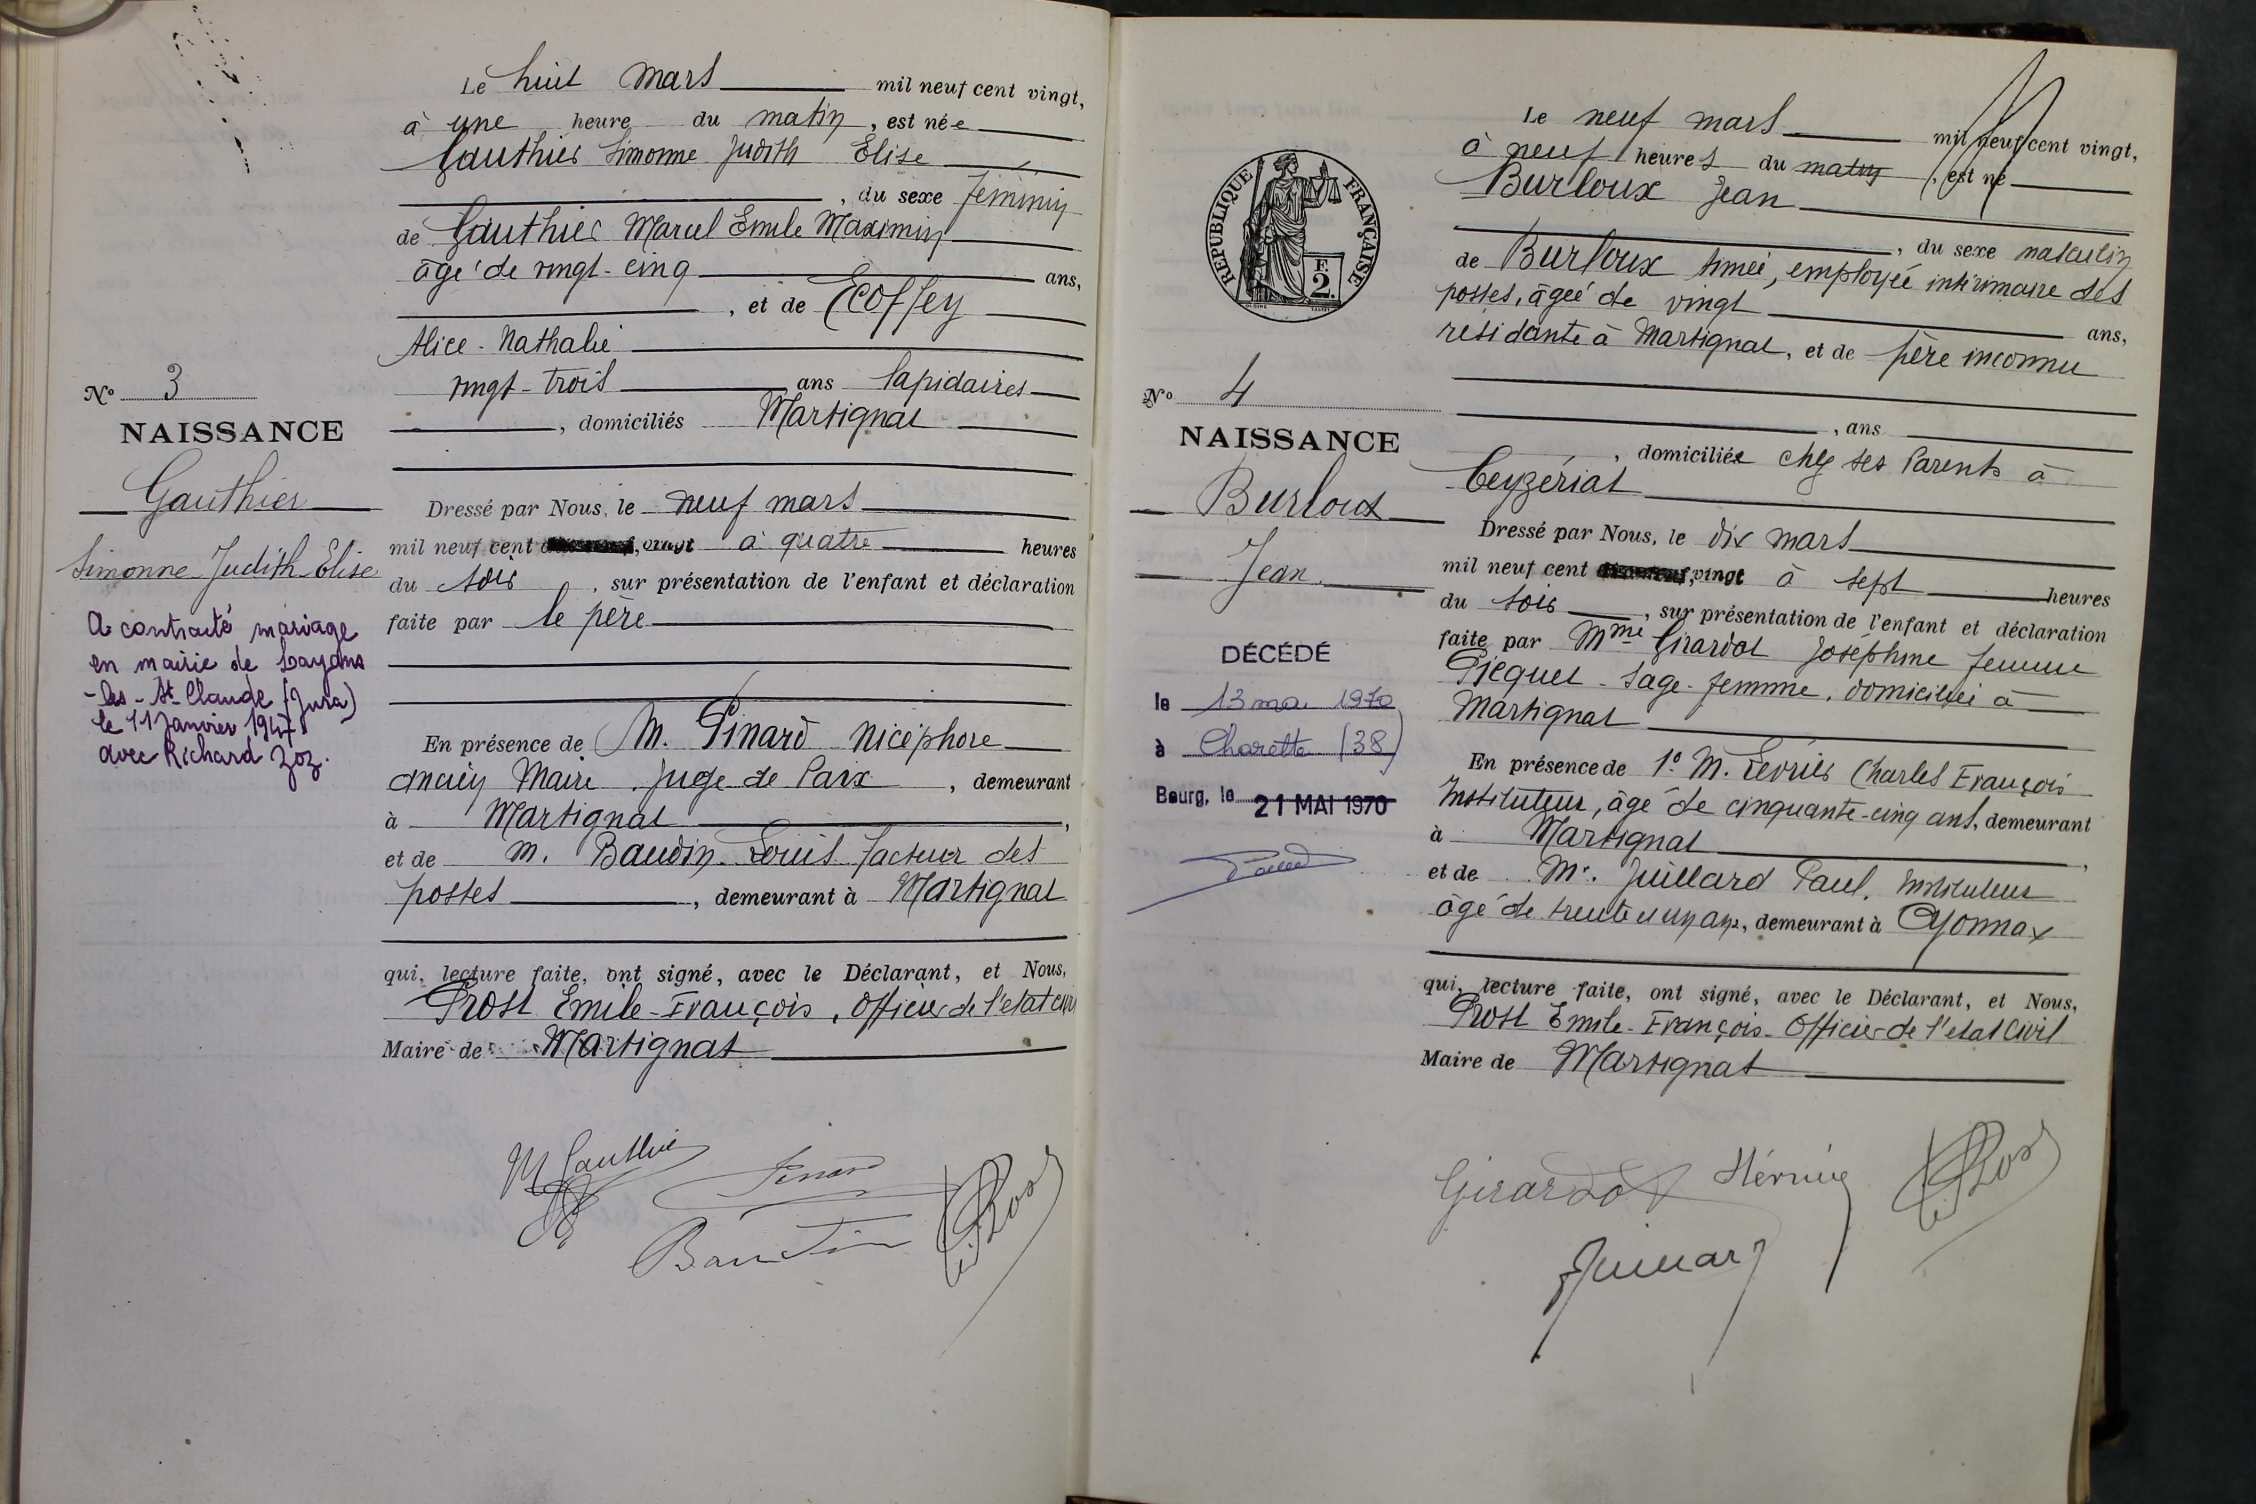 Le huit mars mil neuf cent vingt,
à une heure du matin, est née
Gauthier Simonne Judith Elise
, du sexe féminin
de Gauthier Marcel Emile Maximin
âgé de vingt-cinq ans,
, et de Ecoffey
Alice-Nathalie
vingt-trois ans lapidaires
, domiciliés Martignat
N° 3
NAISSANCE
Gauthier
Simonne-Judith-Elise
A contracté mariage
en mairie de
-les-St-Claude (Jura)
le 11 Janvier 1947
avec Richard Zoz.
Dressé par Nous, le neuf mars
mil neuf cent vingt à quatre heures
du soir, sur présentation de l'enfant et déclaration
faite par le père
En présence de M. Pinard Nicéphore
ancien Maire, Juge de Paix, demeurant
à Martignat,
et de M. Baudin Louis facteur des
postes, demeurant à Martignat
qui, lecture faite, ont signé, avec le Déclarant, et Nous,
Prost Emile-François, Officier de l'état civil
Maire de Martignat
M Gauthier
Pinard
Baudin
Prost
Le neuf mars mil neuf cent vingt,
à neuf heures du matin, est né
Burloux Jean
, du sexe masculin
de Burloux Aimée, employée intérimaire des
postes, âgée de vingt ans,
résidante à Martignat, et de père inconnu
, ans
, domiciliée chez ses Parents à
Ceyzériat
RÉPUBLIQUE FRANÇAISE
F.
2.
N° 4
NAISSANCE
Burloux
Jean
DÉCÉDÉ
le 13 mai 1970
à Charette (38)
Bourg, le 21 MAI 1970
Dressé par Nous, le dix mars
mil neuf cent vingt à sept heures
du soir, sur présentation de l'enfant et déclaration
faite par Mme Girardot Joséphine femme
Picquet - sage-femme, domiciliée à
Martignat
En présence de 1° M. Févrie Charles François
Instituteur, âgé de cinquante-cinq ans, demeurant
à Martignat,
et de Mr. Juillard Paul, Instituteur
âgé de trente et un ans, demeurant à Oyonnax
qui, lecture faite, ont signé, avec le Déclarant, et Nous,
Prost Emile-François-Officier de l'état civil
Maire de Martignat
Girardot
Juillard
Prost